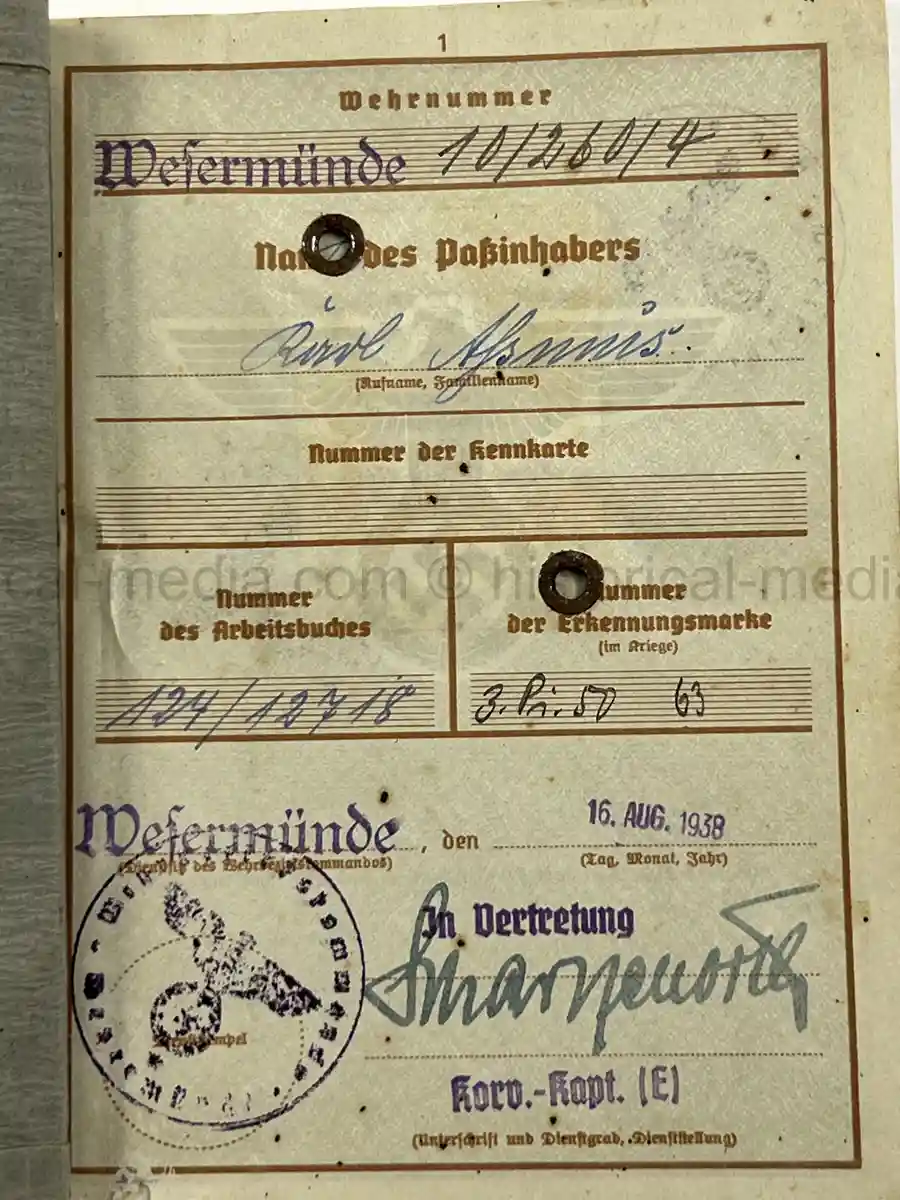 1
Wehrnummer
Wesermünde 10/260/4
Name des Paßinhabers
Karl Aßmus
(Rufname, Familienname)
Nummer der Kennkarte
cal-media.com © historical-media
Nummer des Arbeitsbuches
124/12718
Nummer der Erkennungsmarke
(im Kriege)
3. Pi. 50 63
Wesermünde, den 16. AUG. 1938
(Dienstsitz des Wehrbezirkskommandos) (Tag, Monat, Jahr)
In Vertretung
Dienststempel
Korv.-Kapt. (E)
(Unterschrift und Dienstgrad, Dienststellung)